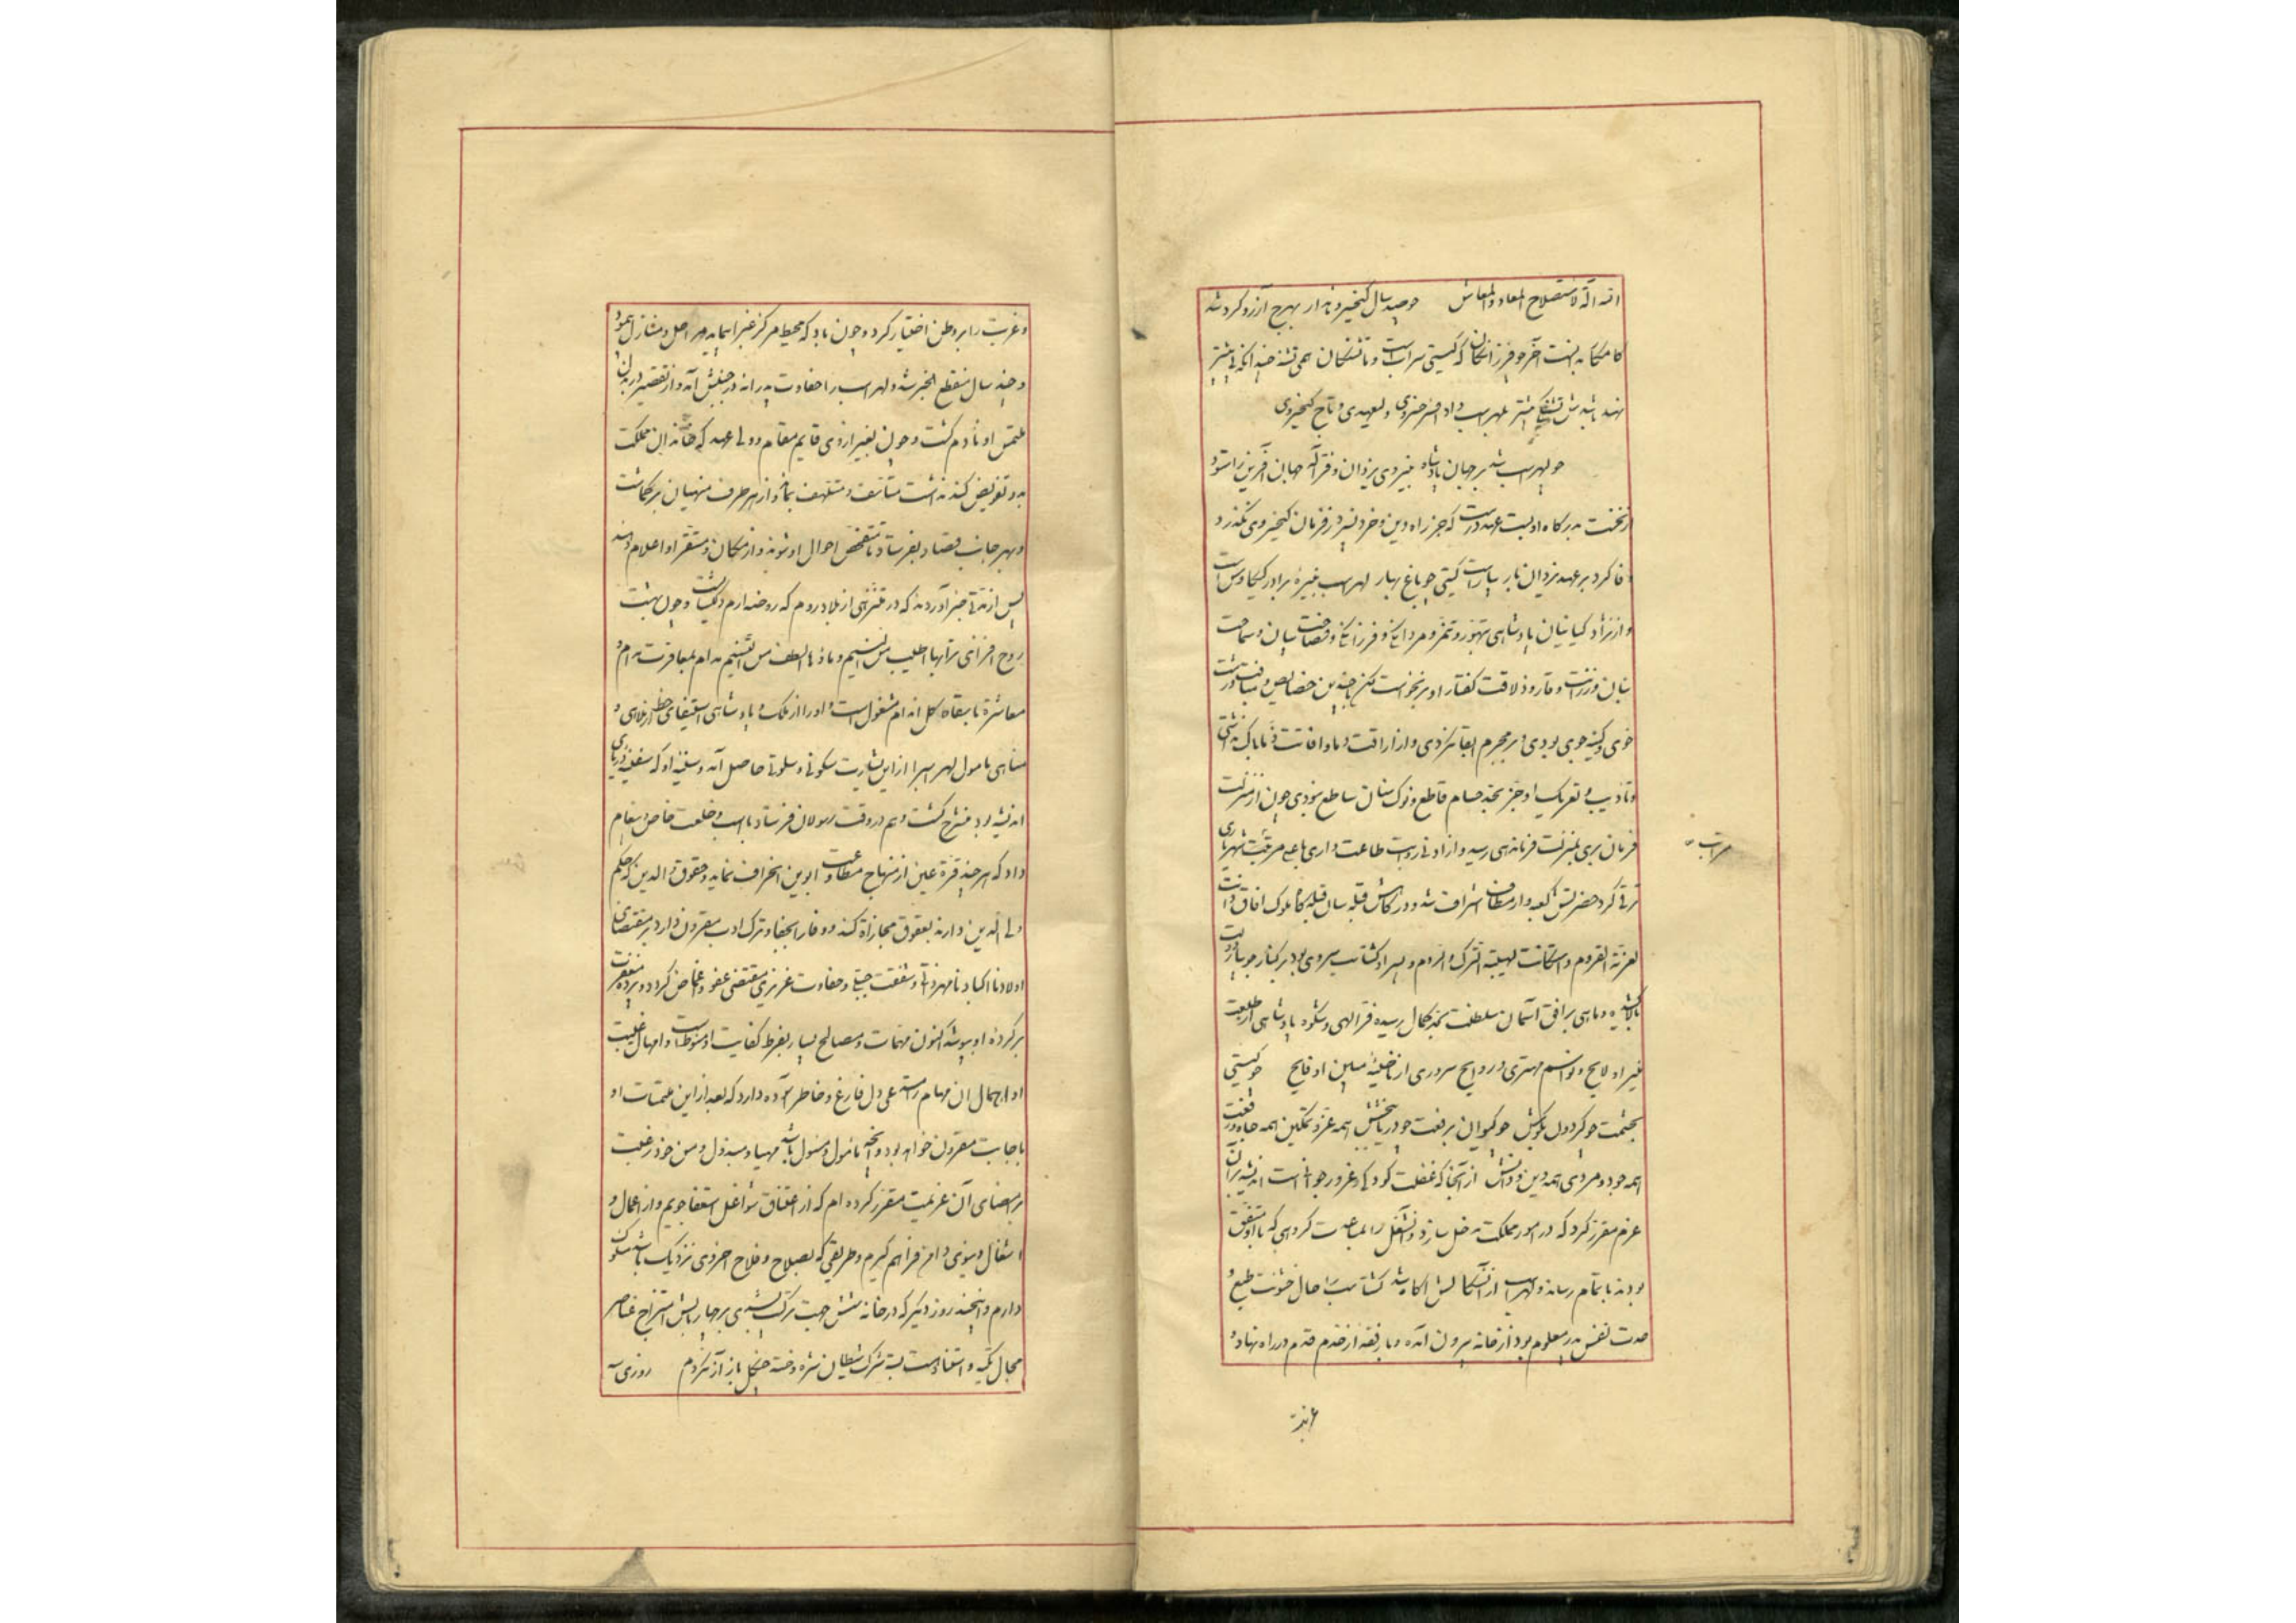 انه آلة لاستصلاح المعاد والمعاش چو صد سال کیخسرو نامدار بهرچ آرزو کرد شد
کامکار آخر چو فرزانگان که گیتی سرابست و ما تشنگان همی تشنه
لهراسب داد افسر خسروی ولیعهدی و تاج کیخسروی
چو لهراسب شد بر جهان پادشاه بنیروی یزدان و فر اله جهان آفرین را ستود
از نخست بدرگاه او بست عهد درست که جز راه دین و خرد نسپرد ز فرمان کیخسروی نگذرد
وفا کرد بر عهد یزدان بار بیاراست گیتی چو باغ بهار لهراسب نبیره برادر کیکاوس است
و از نژاد کیانیان پادشاهی متهور و مردانگی و فرزانگی و فصاحت بیان و سماحت
بنان و رزانت وقار و ذلاقت گفتار او بر نخواست لکن با چندین خصایص و مناقب درشت
خوی و کینه جوی بودی و بر مجرم ابقا نکردی و از اراقت دما و افاتت ذما باک نداشتی
و تأدیب و تعریک او جز بحد حسام قاطع و نوک سنان ساطع نبودی چون از منزلت
فرمان بری بمنزلت فرماندهی رسید و از ادنی رتبت طاعت داری باعلی مرقبت شهریاری
ترقی کرد حضرتش کعبه وار مطاف اشراف شد و درگاهش قبله سان قبله گاه ملوک افاق
لعزته القروم واستکانت لهیبته الترک و الروم و پسر او گشتاسب سروی بود بر کنار جویبار دولت
بالا کشیده و ماهی بر افق آسمان سلطنت بحد کمال رسیده فر الهی و شکوه پادشاهی از طلعت
منیر او لایح و نواسم مهتری و روایح سروری از مخایل او فایح چو گیتی
بحشمت چو گردون بکوشش چو کیوان برفعت چو دریا ببخشش همه عز و تمکین همه جاه و رفعت
همه جود و مردی همه دین و دانش از آنجا که غفلت کودکی و غرور جوانی است اندیشه بر آن
عزم مقرر کرد که در امور مملکت مدخل سازد و تشغل را بمباعدت گروهی که با او متفق
بودند باتمام رساند و لهراسب از آن سگالش اگاه شد گشتاسب را حال خشونت طبع و
حدت نفس پدر معلوم بود از خانه بیرون آمده و با رفقه از خدم قدم در راه نهاد و
مراتب
عزبت
و غربت را بر وطن اختیار کرد و چون باد که محیط مرکز غبرا پیماید مراحل و منازل پیمود
و چند سال منقطع الخبر شد و لهراسب را حفاوت پدرانه در جنبش آمد و از تقصیر در بذل
ملتمس او نادم گشت و چون بغیر از وی قایم مقام و ولی عهد که خزانه آن مملکت
بدو تفویض کند نداشت متأسف و متلهف بماند و از هر طرف منهیان برگماشت
و بهر جانب قصاد بفرستاد تا متفحص احوال او شوند و از مکان و مستقر او اعلام دهند
پس از مدتی خبر آوردند که در متنزهی از بلاد روم که روضه ارم دلگشاست و چون بهشت
روح افزای ترابها اطیب من النسیم و ماؤها الطف من التسنیم مدام بمعاقرت مدام و
معاشرة با سقاة گل اندام مشغول است و او را از ملک و پادشاهی استیفای حظ از ملاهی و
مناهی مامول لهراسب را از این بشارت سکونی و سلوتی حاصل آمد و سینه او که سفینه دریای
اندیشه بود منشرح گشت و هم در وقت رسولان فرستاد با اسب و خلعت خاص و پیغام
داد که هر چند قرة عین از منهاج مطاوعت ابوین انحراف نماید و حقوق والدین که حکم
ولی الدین دارند بعقوق مجازاة کند و وفا را بجفا و ترک ادب مقرون دارد بر مقتضای
اولادنا اکبادنا مهر ذاتی و شفقت جبلی و حفاوت غریزی مقتضی عفو و اغماض گردد و پرده مغفرت
بر کرده او بپوشد اکنون مهمات و مصالح بسیار بفرط کفایت او منوط است و امهال غیبت
او اهمال آن مهام دل فارغ و خاطر آسوده دارد که بعد از این ملتمسات او
باجابت مقرون خواهد بود و آنچه مأمول و مسئول باشد مهیا و مبذول و من خود رغبت
بر امضای آن عزیمت مقرر کرده ام که از اعتناق شواغل استعفا جویم و از اعمال و
اشغال دنیوی دامن فراهم گیرم و طریقی که بصلاح و فلاح اخروی نزدیک باشد مسلوک
دارم و این چند روز دیگر که در خانه شش جهت ترکیب بر چهار بالش امتزاج عناصر
مجال تکیه و استناد است شرک شیطان شره و خسته چنگل باز آز نگردم روزی سه